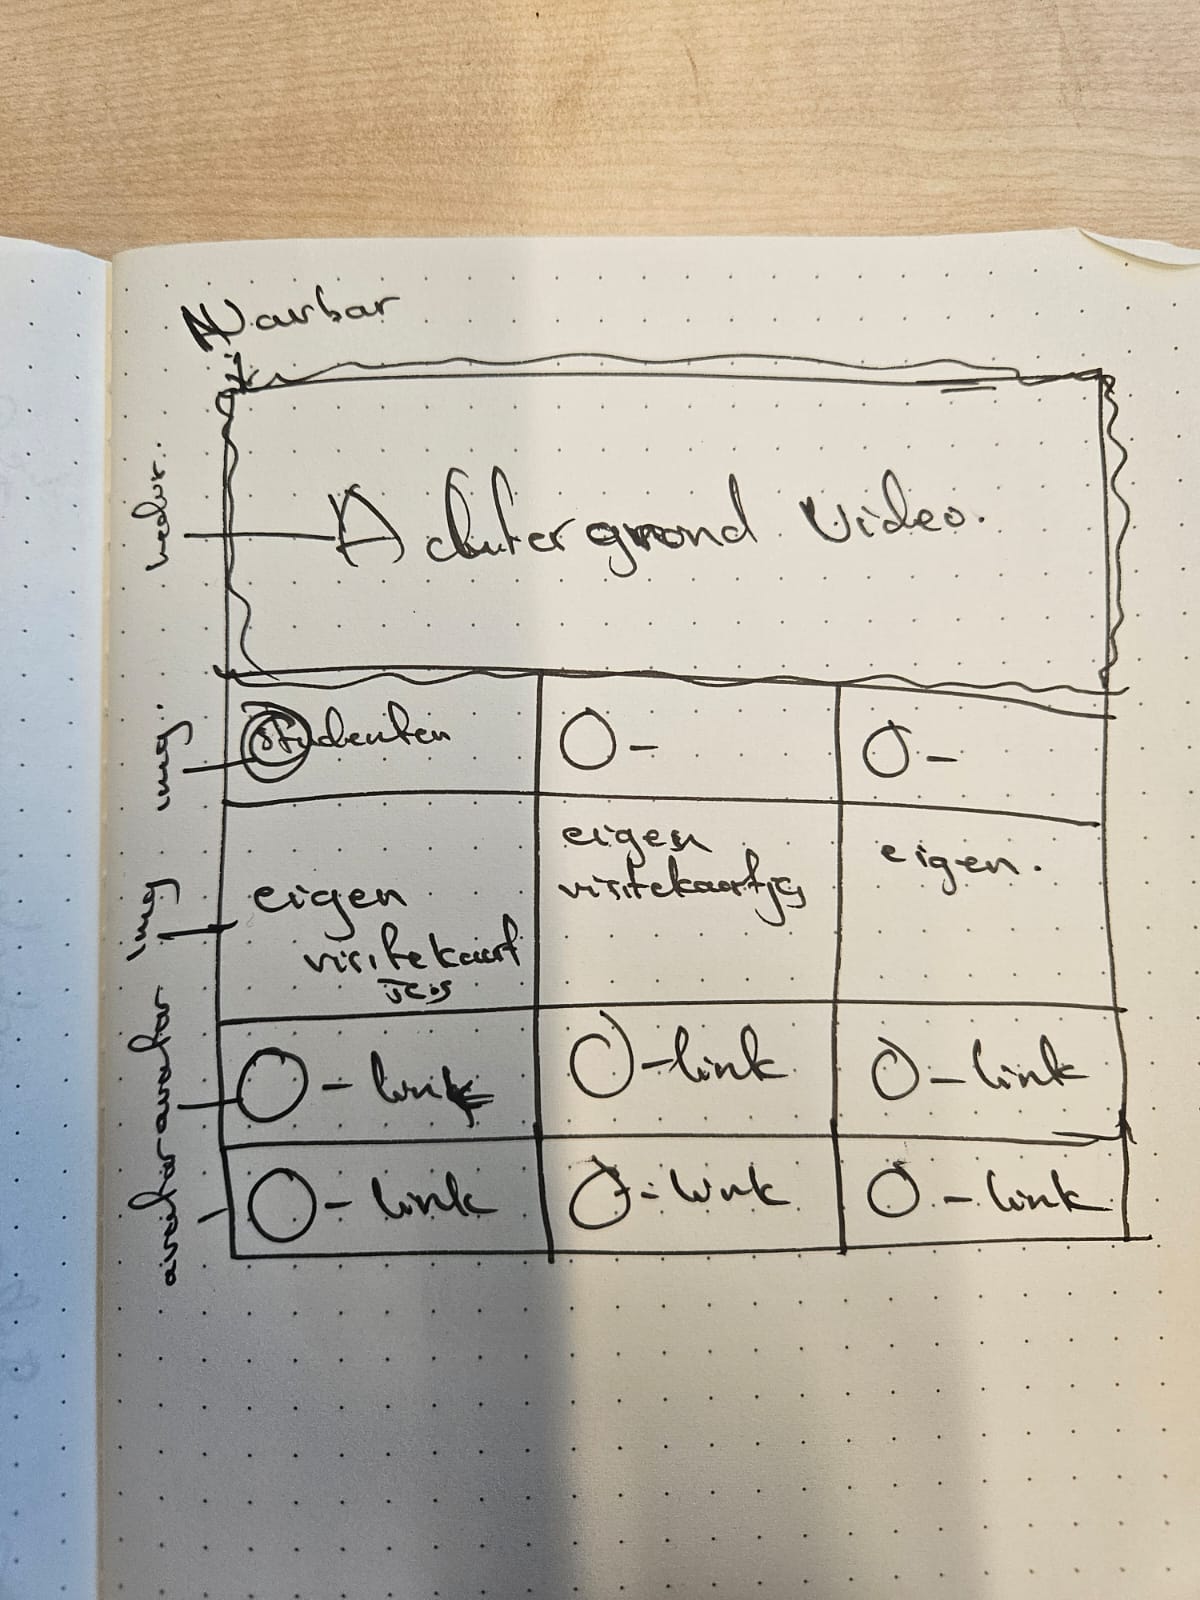 Navbar
header.
Achtergrond video.
img.
studenten
O-
O-
img
eigen
visitekaart
jes
eigen
visitekaartje
eigen.
avatar
O - link
O - link
O - link
avatar
O - link
O - link
O - link